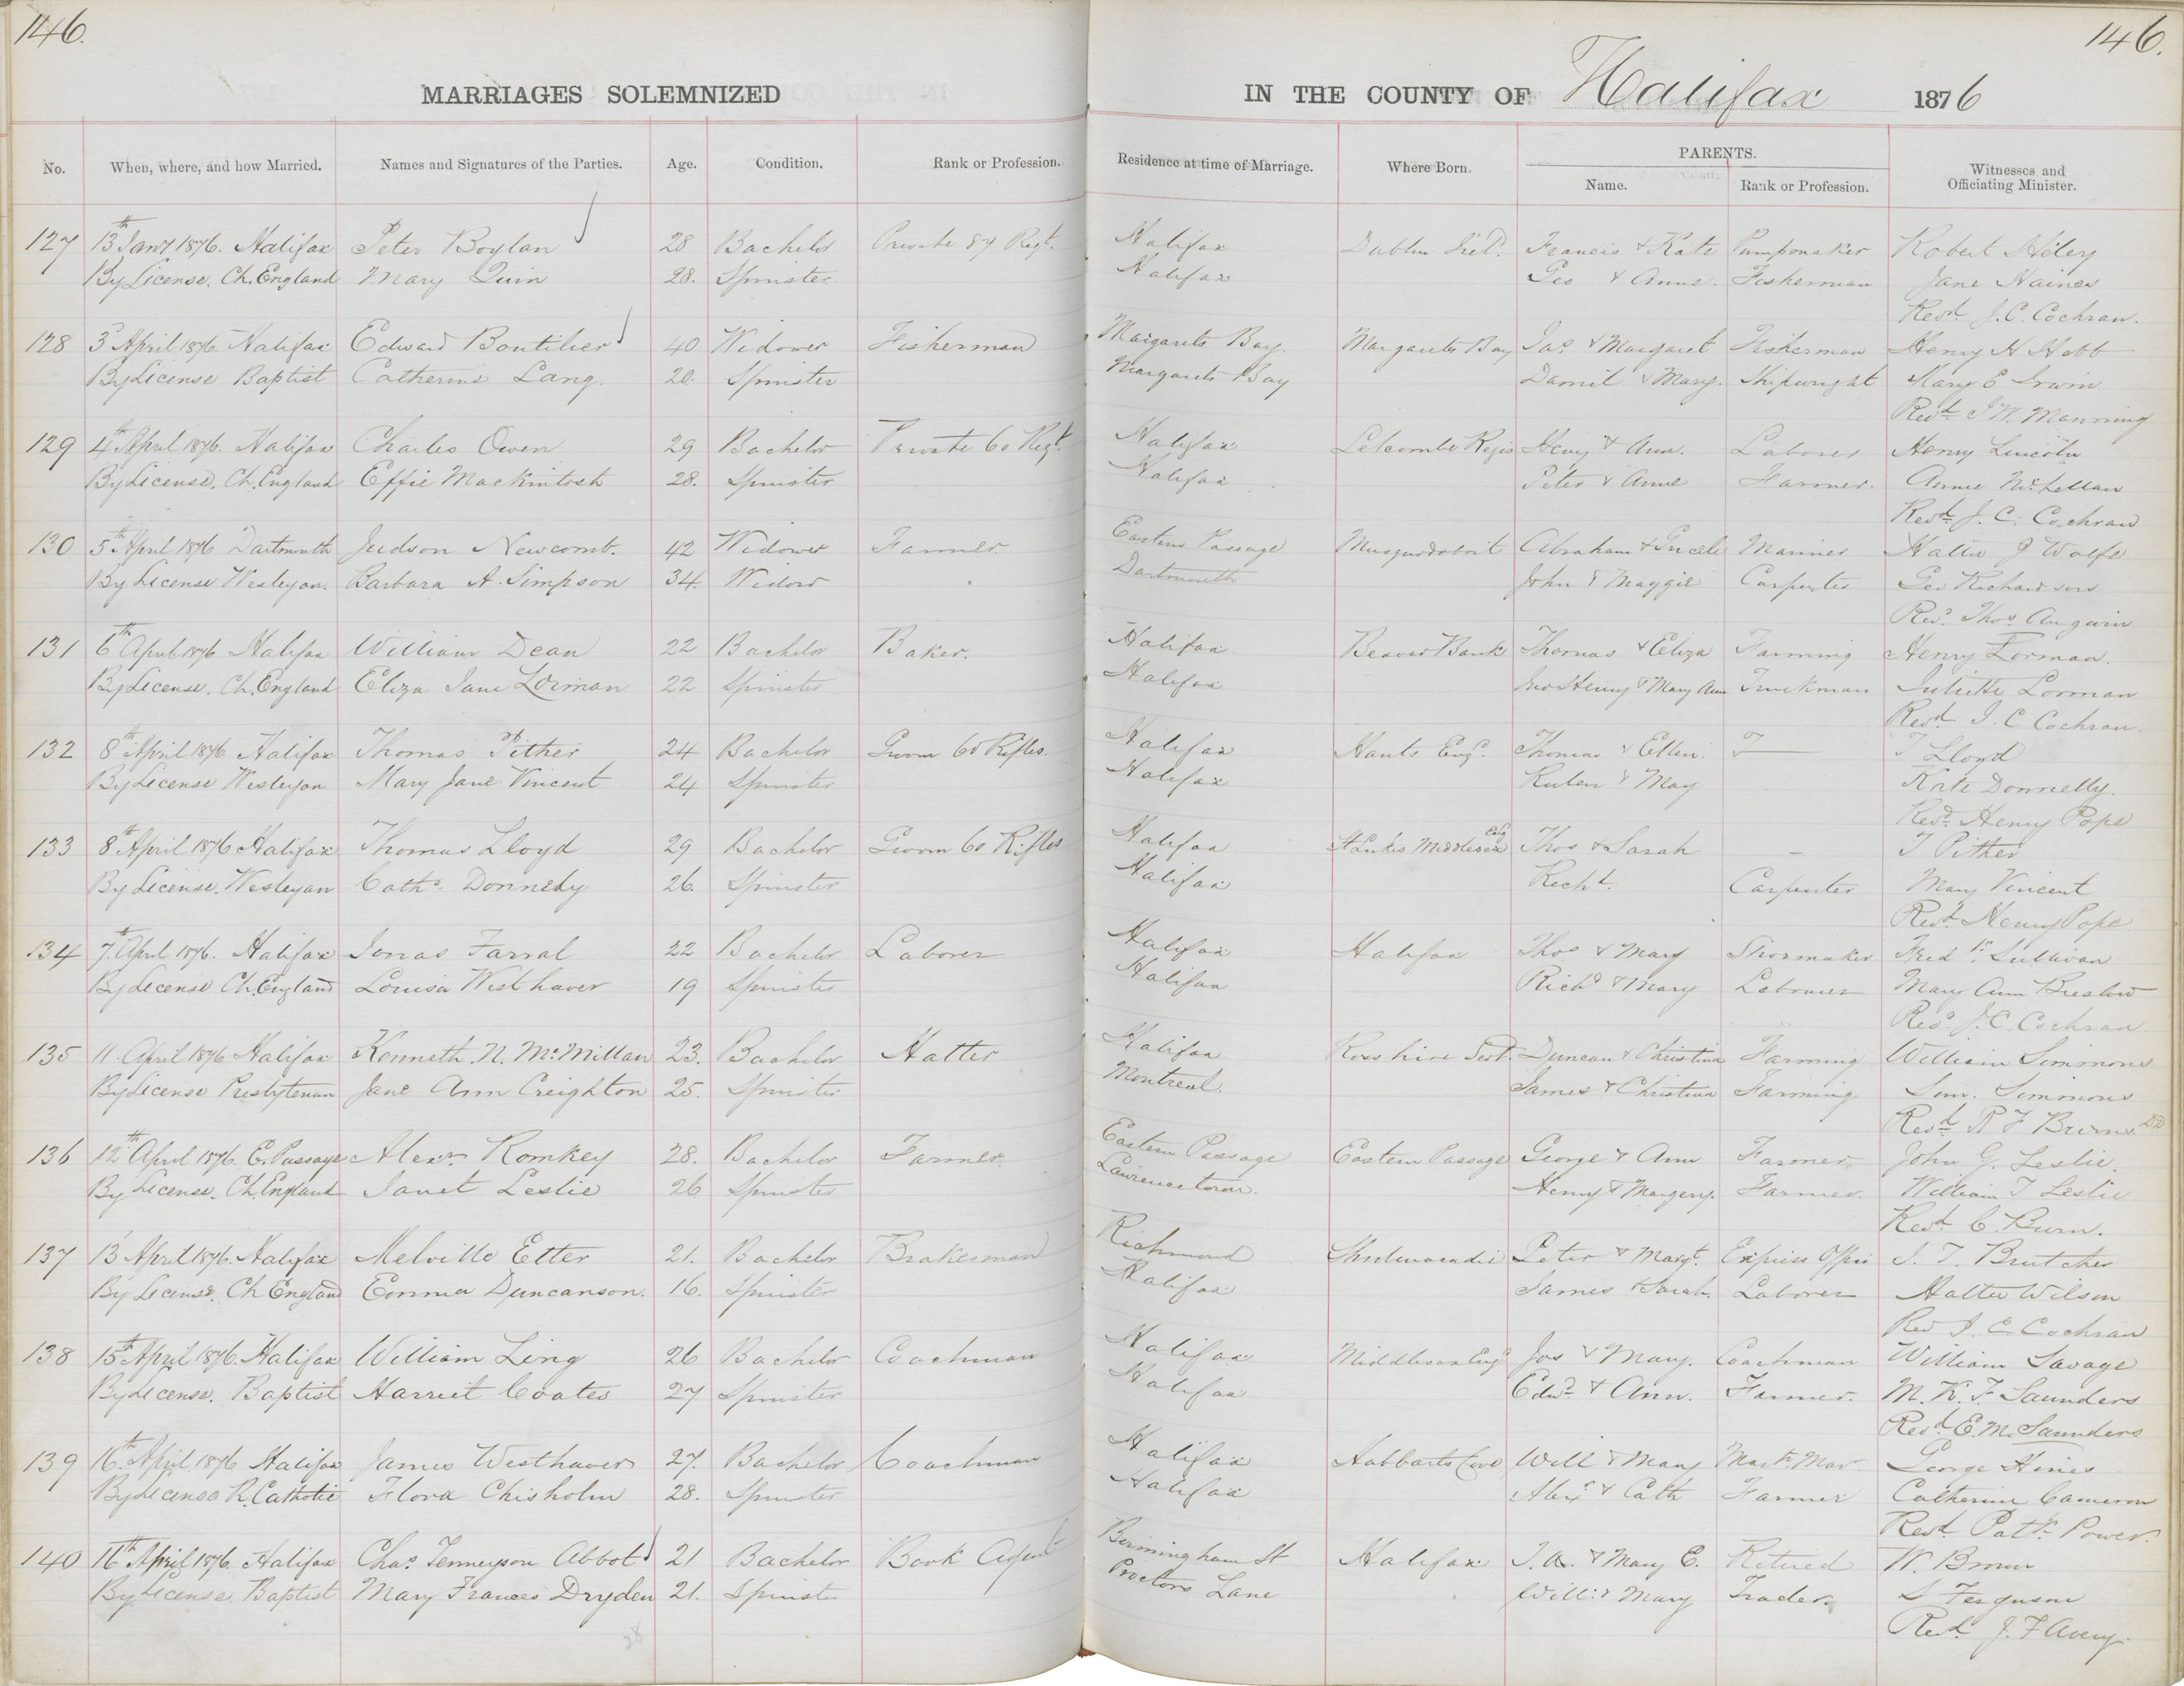 146.
146.
MARRIAGES SOLEMNIZED
IN THE COUNTY OF Halifax 1876
No. When, where, and how Married. Names and Signatures of the Parties. Age. Condition. Rank or Profession. Residence at time of Marriage. Where Born. PARENTS. Name. Rank or Profession. Witnesses and Officiating Minister.
127 13th Jany 1876. Halifax Peter Boylan 28 Bachelor Private 87 Regt. Halifax Dublin Ireld. Francis & Kate Pumpmaker Robert Hiley
By License. Ch. England Mary Quin 28. Spinster Halifax Geo & Anne. Fisherman Jane Haines
Revd. J. C. Cochran.
128 3d April 1876. Halifax Edward Boutilier 40 Widower Fisherman Margarets Bay. Margarets Bay Jas. & Margaret Fisherman Henry N Hebb
By License Baptist Catherine Lang. 20. Spinster Margarets Bay Daniel & Mary. Shipwright Mary E Irwin
Revd. J W. Manning
129 4th April 1876. Halifax Charles Owen 29 Bachelor Private 60 Regt. Halifax Letcombe Regis Henry & Ann. Laborer Henry Lincoln
By License. Ch. England Effie Mackintosh 28. Spinster Halifax Peter & Anne Farmer. Annie McLellan
Revd. J. C. Cochran
130 5th April 1876 Dartmouth Judson Newcomb. 42 Widower Farmer. Eastern Passage Musquodoboit Abraham & Mariner Hattie J Wolfe
By License Wesleyan. Barbara A. Simpson 34. Widow Dartmouth John & Maggie Carpenter Geo Richardson
Revd. Thos. Angwin
131 6th April 1876 Halifax William Dean 22 Bachelor Baker. Halifax Beaver Bank Thomas & Eliza Farming Henry Lorman.
By License. Ch. England Eliza Jane Lorman 22 Spinster Halifax Jno Henry & Mary Ann Truckman Juliette Lorman
Revd. J. C Cochran.
132 8th April 1876 Halifax Thomas Pither 24 Bachelor Groom 60 Rifles. Halifax Hants Engd. Thomas & Ellen. T Lloyd
By License Wesleyan Mary Jane Vincent 24 Spinster Halifax Ruben & May Kate Donnelly.
Revd. Henry Pope
133 8th April 1876 Halifax Thomas Lloyd 29 Bachelor Groom 60 Rifles Halifax St Lukes Middlesex Eng Thos & Sarah – T Pither
By License. Wesleyan Cathe. Donnelly 26. Spinster Halifax Richd. Carpenter Mary Vincent
Revd. Henry Pope
134 7th April 1876. Halifax Jonas Farral 22 Bachelor Laborer Halifax Halifax Thos & Mary Shoemaker Fred Sullivan
By License Ch. England Louisa Westhaver 19 Spinster Halifax Richd & Mary Labourer Mary Ann Breslow
Revd. J. C. Cochran
135 11. April 1876 Halifax Kenneth N. McMillan 23. Bachelor Hatter Halifax Rosshire Scot. Duncan & Christina Farming William Simmons
By License Presbyterian Jane Ann Creighton 25. Spinster Montreal. James & Christina Farming. Simmons
Revd. R F Burns DD
136 12th April 1876. E. Passage Alexr. Romkey 28. Bachelor Farmer. Eastern Passage Eastern Passage George & Ann Farmer. John G. Leslie.
By License. Ch. England Janet Leslie 26 Spinster Lawrencetown. Henry & Margery. Farmer. William T Leslie
Revd. C. Burn.
137 13 April 1876. Halifax Melville Etter 21. Bachelor Brakesman Richmond Shubenacadie Peter & Margt. Express Offici J. T. Brutcher
By License. Ch England Emma Duncanson. 16. Spinster Halifax James & Sarah. Laborer Hattie Wilson
Rev J. C. Cochran
138 15th April 1876. Halifax William Ling 26 Bachelor Coachman Halifax Middlesex Engd Jos & Mary. Coachman William Savage
By License. Baptist Harriet Coates 27 Spinster Halifax Edwd. & Ann. Farmer. M. K. F. Saunders
Revd. E. M. Saunders
139 16th. April 1876 Halifax James Westhaver 27. Bachelor Coachman Halifax Hubbarts Cove Will & Mary Mastr. Mar. George Hines
By License R. Catholic Flora Chisholm 28. Spinster Halifax Alexr & Cath Farmer Catherine Cameron
Revd. Patk. Power.
140 16th April 1876. Halifax Chas. Tenneyson Abbot 21 Bachelor Book Agent Birmingham St Halifax J. A. & Mary E. Retired W. Brown
By License. Baptist Mary Frances Dryden 21. Spinster Proctors Lane Will. & Mary Trader. S Ferguson
Revd. J. F Avery.
28